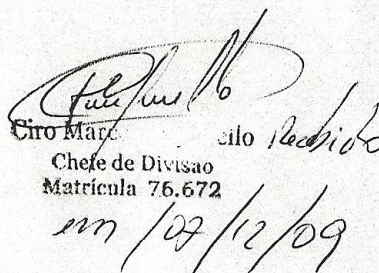 Ciro Marc ilo Recebido
Chefe de Divisao
Matrícula 76.672
em 07/12/09